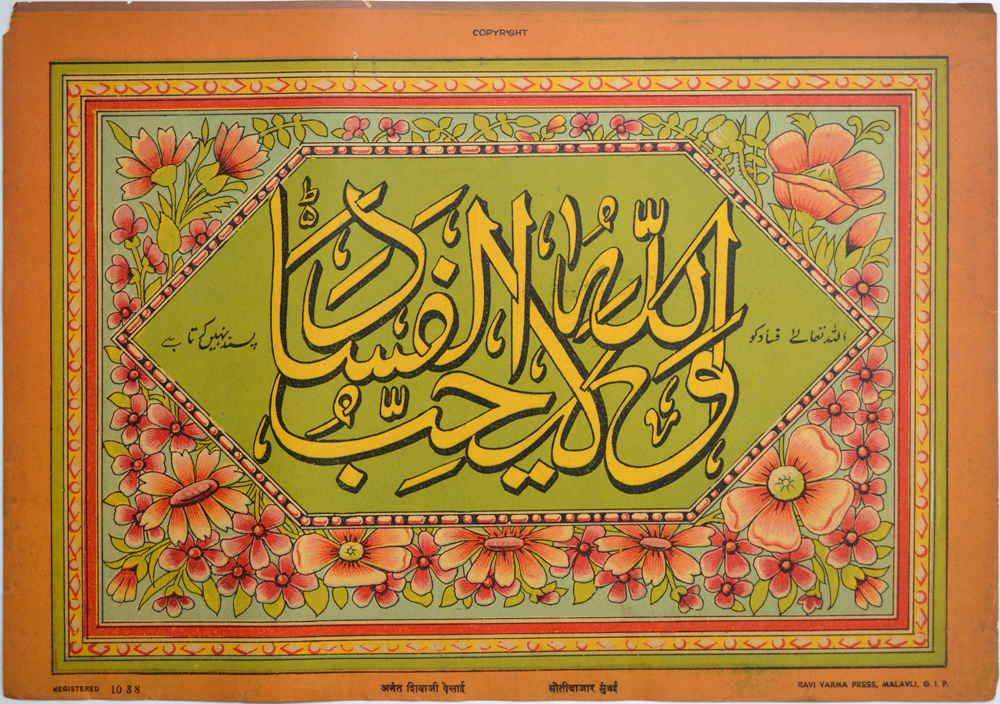 COPYRIGHT
وَاللّٰهُ لَا يُحِبُّ الْفَسَادَ
اللہ تعالےٰ فساد کو پسند نہیں کرتا ہے
REGISTERED 1038
अनंत शिवाजी देसाई मोतीबाजार मुंबई
RAVI VARMA PRESS, MALAVLI, G. I. P.